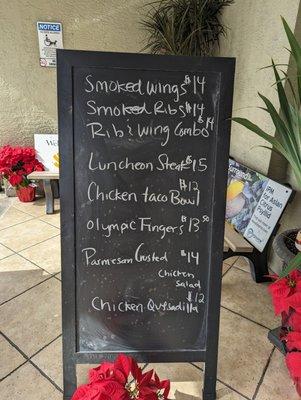 Smoked wings $14
Smoked Ribs $14
Rib & wing Combo $14
Luncheon Steak $15
Chicken taco Bowl $12
Olympic Fingers $13.50
Parmesan Crusted $14
chicken
salad
Chicken Quesadilla $12